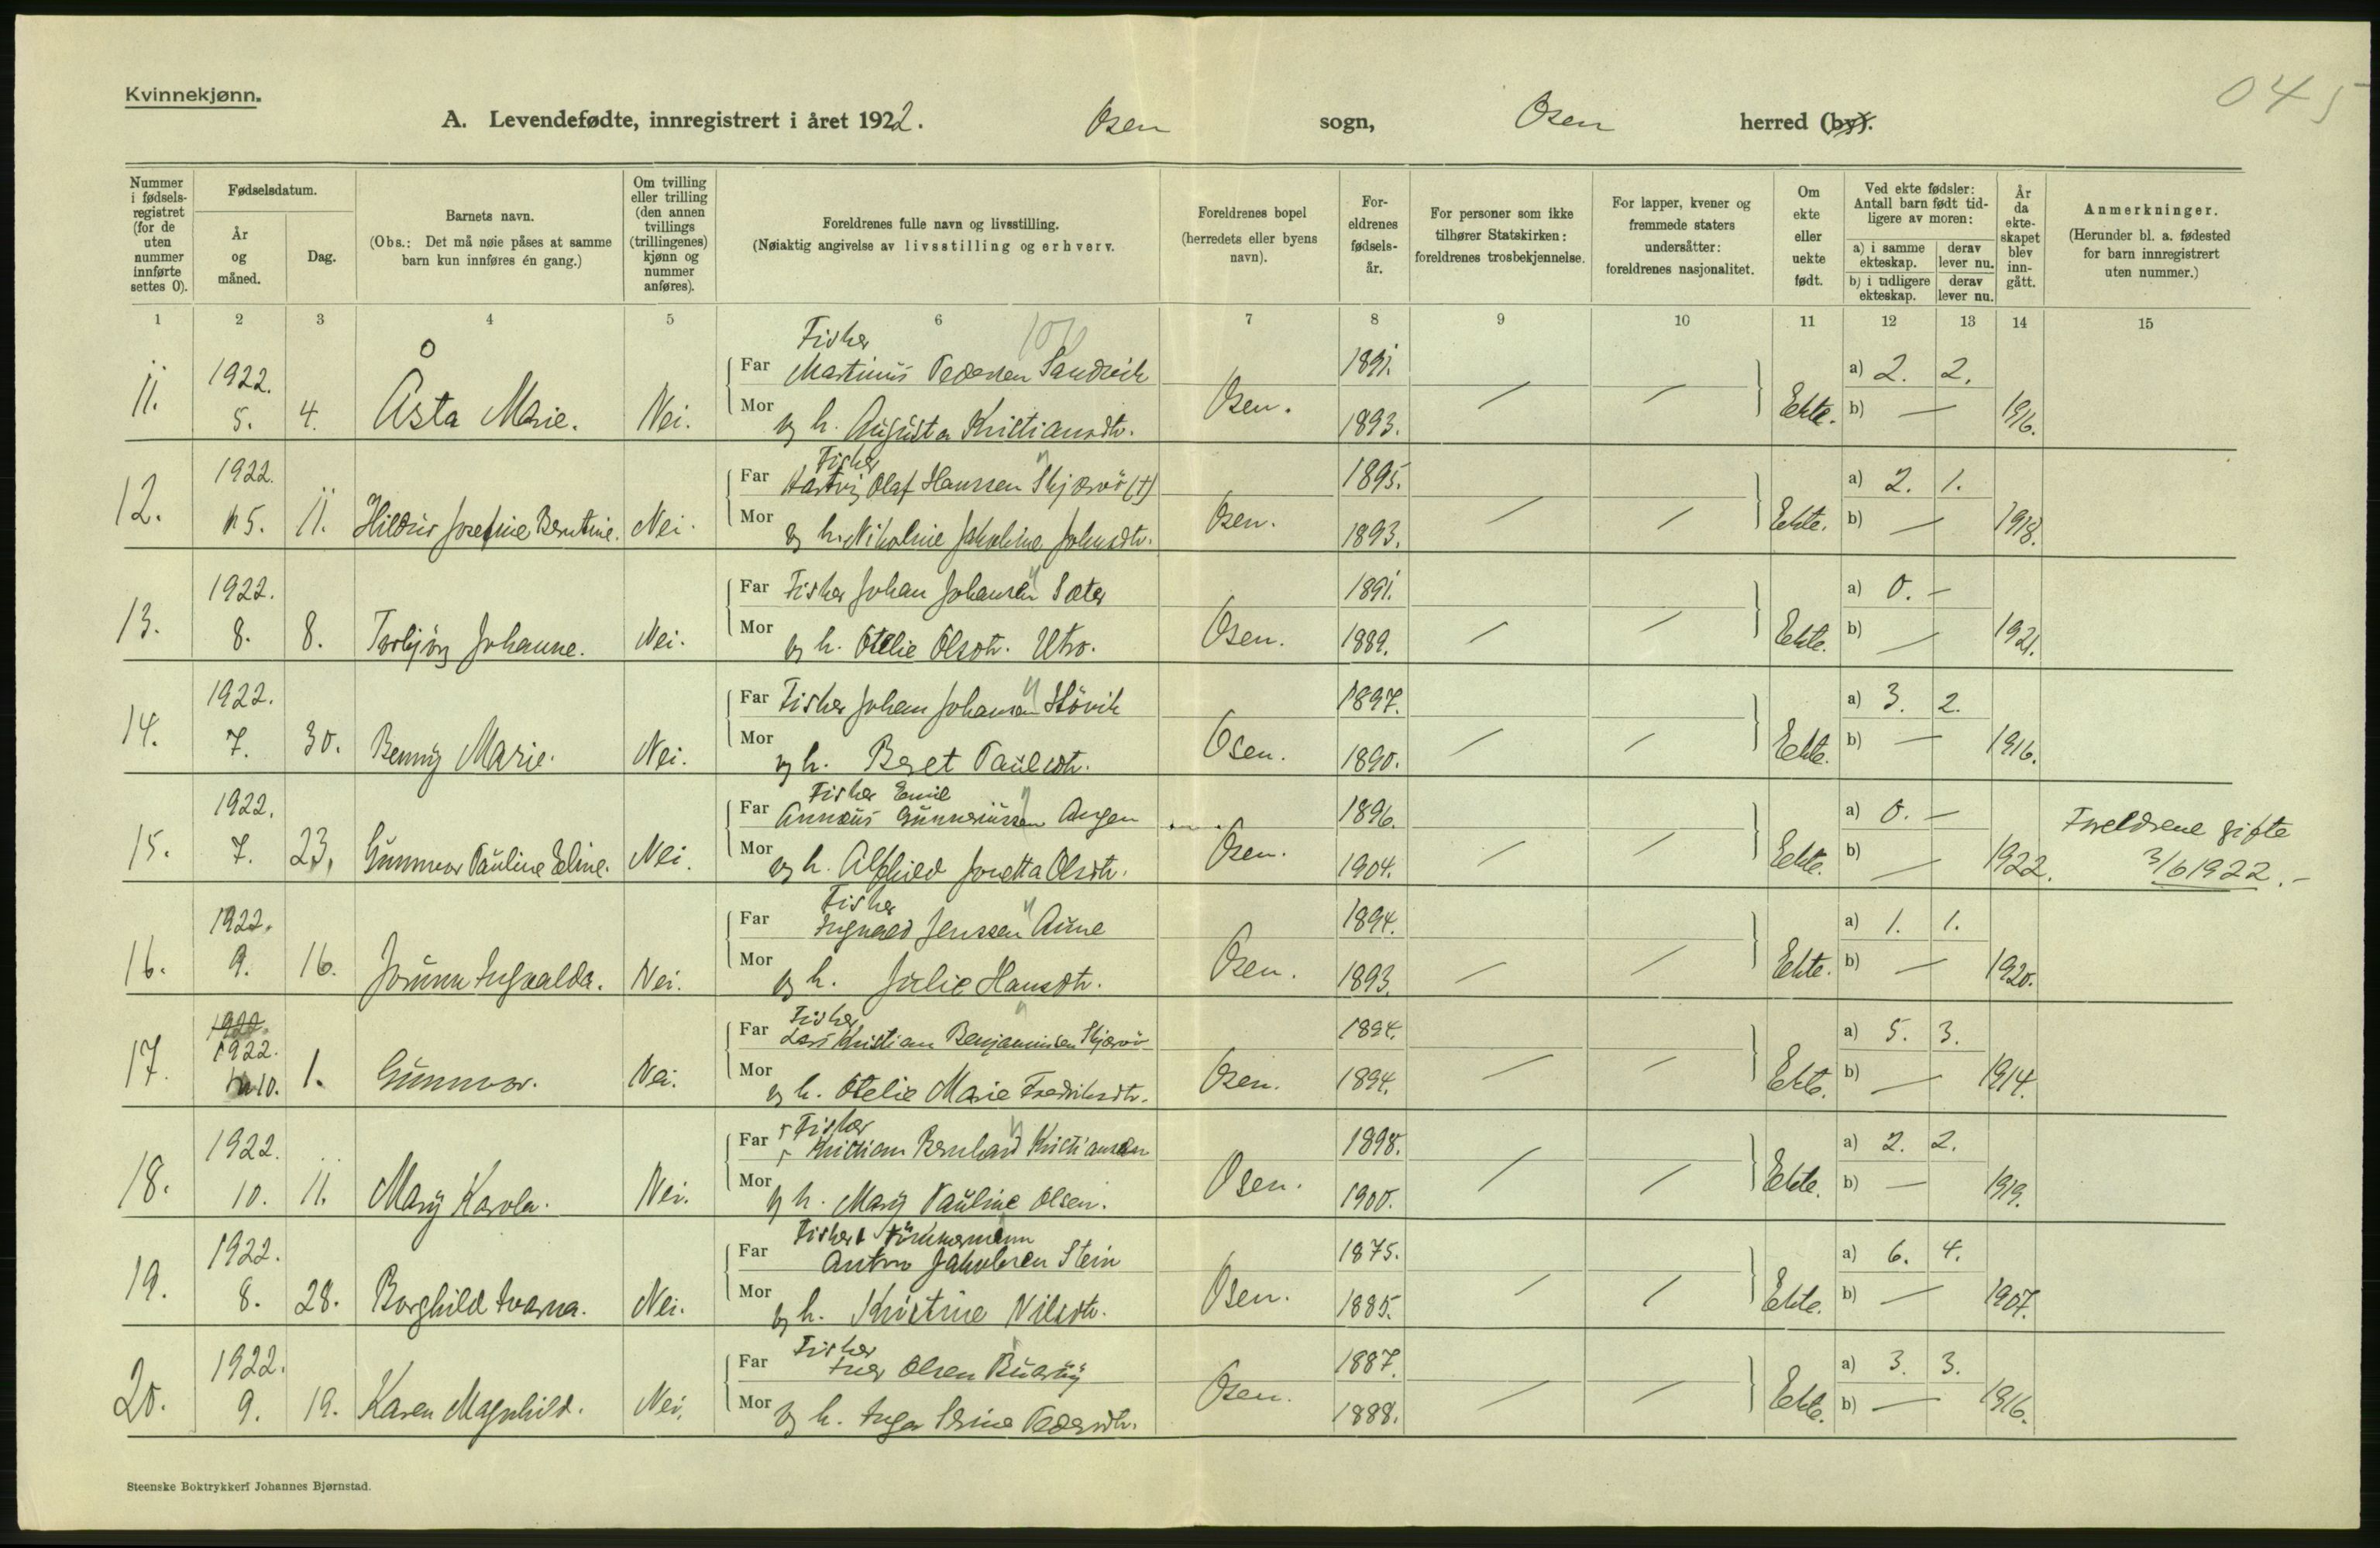 Kvinnekjønn.
045
A. Levendefødte, innregistrert i året 1922. Osen sogn, Osen herred (by).
Nummer i fødselsregistret (for de uten nummer innførte settes 0).
Fødselsdatum.
År og måned.
Dag.
Barnets navn.
(Obs.: Det må nøie påses at samme barn kun innføres én gang.)
Om tvilling eller trilling (den annen tvillings (trillingenes) kjønn og nummer anføres).
Foreldrenes fulle navn og livsstilling.
(Nøiaktig angivelse av livsstilling og erhverv.
Foreldrenes bopel (herredets eller byens navn).
Foreldrenes fødselsår.
For personer som ikke tilhører Statskirken: foreldrenes trosbekjennelse.
For lapper, kvener og fremmede staters undersåtter: foreldrenes nasjonalitet.
Om ekte eller uekte født.
Ved ekte fødsler: Antall barn født tidligere av moren:
a) i samme ekteskap.
derav lever nu.
b) i tidligere ekteskap.
derav lever nu.
År da ekteskapet blev inngått.
Anmerkninger.
(Herunder bl. a. fødested for barn innregistrert uten nummer.)
1 2 3 4 5 6 7 8 9 10 11 12 13 14 15
Fisker
11. 1922. Far Martinus Pedersen Sandvik 1891. a) 2. 2.
5. 4. Åsta Marie. Nei. Mor og h. Augusta Kristiansdtr. Osen. 1893. Ekte. b) — 1916.
Fisker
12. 1922. Far Hartvig Olaf Hanssen Skjærvö (†) 1895. a) 2. 1.
5. 11. Hildur Josefine Berntine. Nei. Mor og h. Nikoline Jakobine Johnsdtr. Osen. 1893. Ekte. b) — 1918.
13. 1922. Far Fisker Johan Johansen Sæter 1891. a) 0. -
8. 8. Torbjörg Johanne. Nei. Mor og h. Otelie Olsdtr. Utro. Osen. 1889. Ekte. b) — 1921.
14. 1922. Far Fisker Johan Johansen Hövik 1897. a) 3. 2.
7. 30. Benny Marie. Nei. Mor og h. Beret Paulsdtr. Osen. 1890. Ekte. b) — 1916.
Fisker Emil
15. 1922. Far Annæus Gunneriussen Angen 1896. a) 0. - Foreldrene gifte
7. 23. Gunnvor Pauline Eline. Nei. Mor og h. Alfhild Jonetta Olsdtr. Osen. 1904. Ekte. b) — 1922. 3/6 1922.-
Fisker
16. 1922. Far Ingvald Jenssen Aune 1894. a) 1. 1.
9. 16. Jorunn Ingvalda. Nei. Mor og h. Julie Hansdtr. Osen. 1893. Ekte. b) — 1920.
Fisker
17. 1922. Far Lars Kristian Benjaminsen Skjærvö 1894. a) 5. 3.
10. 1. Gunnvor. Nei. Mor og h. Otelie Marie Fredriksdtr. Osen. 1894. Ekte. b) — 1914.
Fisker
18. 1922. Far Kristian Bernhard Kristiansen 1898. a) 2. 2.
10. 11. Mary Karola. Nei. Mor og h. Mary Pauline Olsen. Osen. 1900. Ekte. b) — 1919.
Fisker & Tömmermann
19. 1922. Far Anton Jakobsen Stein 1875. a) 6. 4.
8. 28. Borghild Ivarna. Nei. Mor og h. Kristine Nilsdtr. Osen. 1885. Ekte. b) — 1907.
Fisker
20. 1922. Far Iver Olsen Buarøy 1887. a) 3. 3.
9. 19. Karen Magnhild. Nei. Mor og h. Inga Serine Pedersdtr. Osen. 1888. Ekte. b) — 1916.
Steenske Boktrykkeri Johannes Bjørnstad.